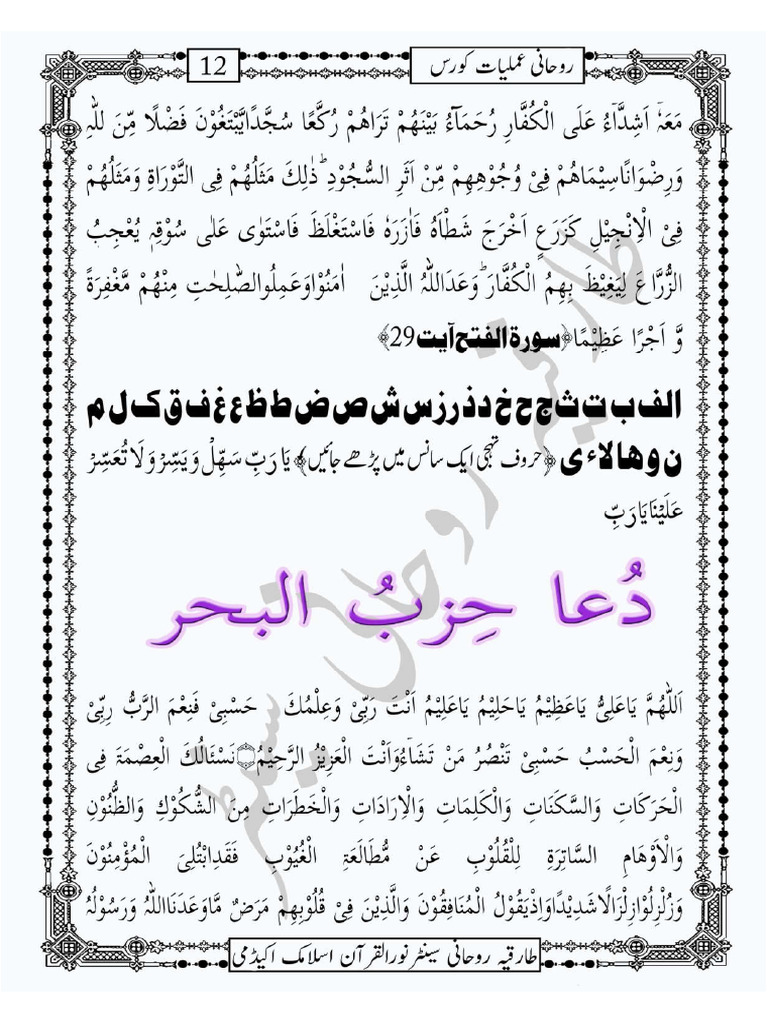 روحانی عملیات کورس
12
مَعَہٗۤ اَشِدَّآءُ عَلَی الْکُفَّارِ رُحَمَآءُ بَیْنَهُمْ تَرَاهُمْ رُکَّعًا سُجَّدًایَّبْتَغُوْنَ فَضْلًا مِّنَ للّٰہِ
وَرِضْوَانًاسِیْمَاهُمْ فِیْ وُجُوْهِهِمْ مِّنْ اَثَرِ السُّجُوْدِ ؕ ذٰلِكَ مَثَلُهُمْ فِی التَّوْرَاۃِ وَمَثَلُهُمْ
فِیْ الْاِنْجِیْلِ کَزَرَعٍ اَخْرَجَ شَطْاَہٗ فَاٰزَرَہٗ فَاسْتَغْلَظَ فَاسْتَوٰی عَلٰی سُوْقِہٖ یُعْجِبُ
الزُّرَّاعَ لِیَغِیْظَ بِهِمُ الْکُفَّارَ ؕ وَعَدَاللّٰہُ الَّذِیْنَ اٰمَنُوْاوَعَمِلُوالصّٰلِحٰتِ مِنْهُمْ مَّغْفِرَۃً
وَّ اَجْرًا عَظِیْمًا﴿سورۃ الفتح آیت 29﴾
الف ب ت ث ج ح خ د ذ ر ز س ش ص ض ط ظ ع غ ف ق ک ل م
ن و ھ ا لا ء ی ﴿حروف تہجی ایک سانس میں پڑھے جائیں﴾ یَارَبِّ سَهِّلْ وَیَسِّرْ وَلَا تُعَسِّرْ
عَلَیْنَایَارَبِّ
دُعا حِزبُ البحر
اَللّٰهُمَّ یَاعَلِیُّ یَاعَظِیْمُ یَاحَلِیْمُ یَاعَلِیْمُ اَنْتَ رَبِّیْ وَعِلْمُكَ حَسْبِیْ فَنِعْمَ الرَّبُّ رَبِّیْ
وَنِعْمَ الْحَسْبُ حَسْبِیْ تَنْصُرُ مَنْ تَشَآءُوَاَنْتَ الْعَزِیْزُ الرَّحِیْمُ۝نَسْئَالُكَ الْعِصْمَۃَ فِی
الْحَرَکَاتِ وَالسَّکَنَاتِ وَالْکَلِمَاتِ وَالْاِرَادَاتِ وَالْخَطَرَاتِ مِنَ الشُّکُوْكِ وَالظُّنُوْنِ
وَالْاَوْهَامِ السَّاتِرَۃِ لِلْقُلُوْبِ عَنْ مُّطَالَعَۃِ الْغُیُوْبِ فَقَدِابْتُلِیَ الْمُؤْمِنُوْنَ
وَزُلْزِلُوْازِلْزَالًاشَدِیْدًاوَاِذْیَقُوْلُ الْمُنَافِقُوْنَ وَالَّذِیْنَ فِیْ قُلُوْبِهِمْ مَرَضٌ مَّاوَعَدَنَااللّٰہُ وَرَسُوْلُہٗ
طارقیہ روحانی سینٹر نورالقرآن اسلامک اکیڈمی
طارقیہ روحانی سینٹر